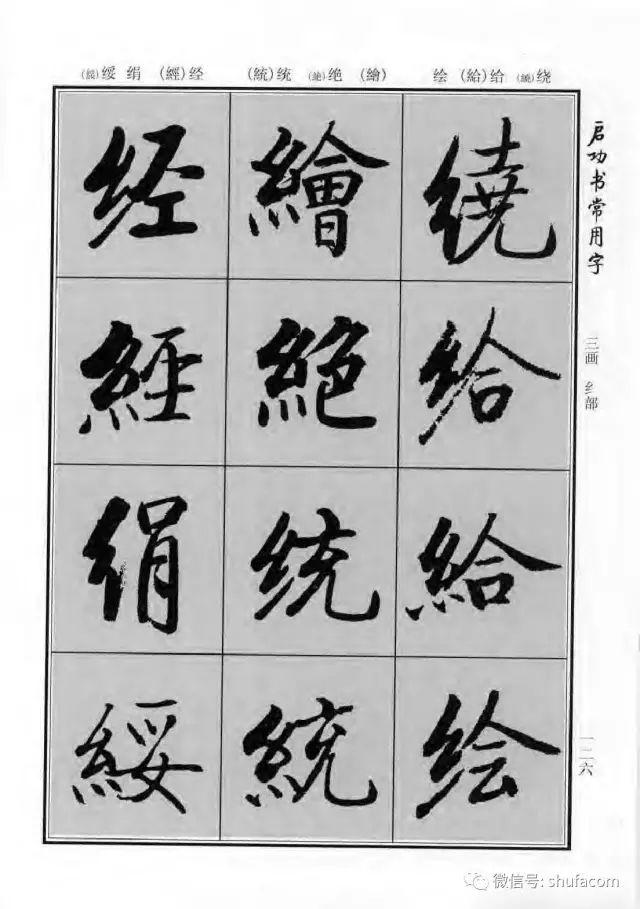 (綏)绥 绢 (經)经 (統)统 (絶)绝 (繪) 绘 (給)给 (繞)绕
经 繪 绕
經 絶 给
绢 统 給
綏 統 绘
启功书常用字
三画 纟部
一二六
微信号: shufacom